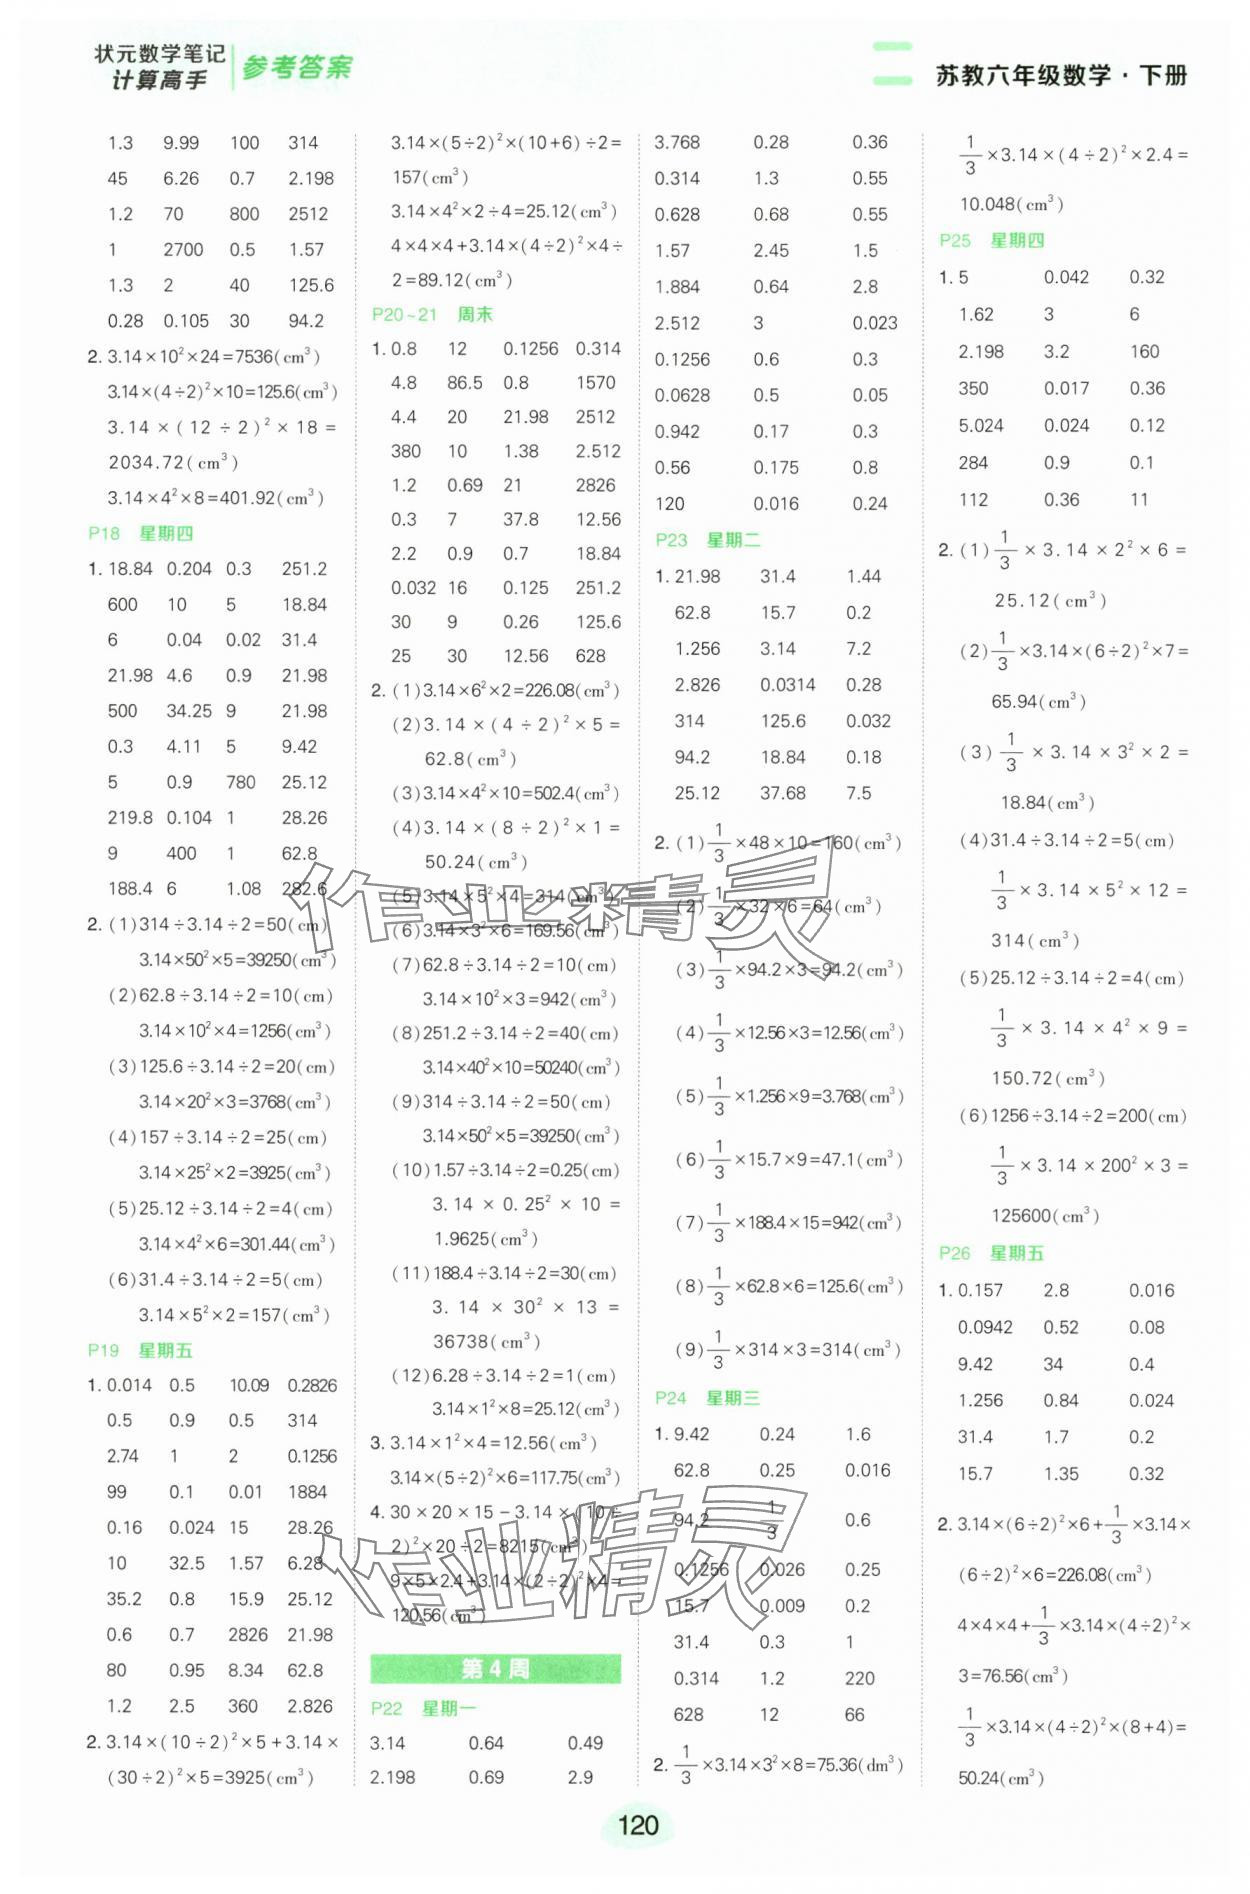 状元数学笔记
计算高手
参考答案
苏教六年级数学·下册
1.3 9.99 100 314
45 6.26 0.7 2.198
1.2 70 800 2512
1 2700 0.5 1.57
1.3 2 40 125.6
0.28 0.105 30 94.2
2. 3.14×10²×24=7536(cm³)
3.14×(4÷2)²×10=125.6(cm³)
3.14×(12÷2)²×18=
2034.72(cm³)
3.14×4²×8=401.92(cm³)
P18 星期四
1. 18.84 0.204 0.3 251.2
600 10 5 18.84
6 0.04 0.02 31.4
21.98 4.6 0.9 21.98
500 34.25 9 21.98
0.3 4.11 5 9.42
5 0.9 780 25.12
219.8 0.104 1 28.26
9 400 1 62.8
188.4 6 1.08 282.6
2. (1)314÷3.14÷2=50(cm)
3.14×50²×5=39250(cm³)
(2)62.8÷3.14÷2=10(cm)
3.14×10²×4=1256(cm³)
(3)125.6÷3.14÷2=20(cm)
3.14×20²×3=3768(cm³)
(4)157÷3.14÷2=25(cm)
3.14×25²×2=3925(cm³)
(5)25.12÷3.14÷2=4(cm)
3.14×4²×6=301.44(cm³)
(6)31.4÷3.14÷2=5(cm)
3.14×5²×2=157(cm³)
P19 星期五
1. 0.014 0.5 10.09 0.2826
0.5 0.9 0.5 314
2.74 1 2 0.1256
99 0.1 0.01 1884
0.16 0.024 15 28.26
10 32.5 1.57 6.28
35.2 0.8 15.9 25.12
0.6 0.7 2826 21.98
80 0.95 8.34 62.8
1.2 2.5 360 2.826
2. 3.14×(10÷2)²×5+3.14×
(30÷2)²×5=3925(cm³)
3.14×(5÷2)²×(10+6)÷2=
157(cm³)
3.14×4²×2÷4=25.12(cm³)
4×4×4+3.14×(4÷2)²×4÷
2=89.12(cm³)
P20~21 周末
1. 0.8 12 0.1256 0.314
4.8 86.5 0.8 1570
4.4 20 21.98 2512
380 10 1.38 2.512
1.2 0.69 21 2826
0.3 7 37.8 12.56
2.2 0.9 0.7 18.84
0.032 16 0.125 251.2
30 9 0.26 125.6
25 30 12.56 628
2. (1)3.14×6²×2=226.08(cm³)
(2)3.14×(4÷2)²×5=
62.8(cm³)
(3)3.14×4²×10=502.4(cm³)
(4)3.14×(8÷2)²×1=
50.24(cm³)
(5)3.14×5²×4=314(cm³)
(6)3.14×3²×6=169.56(cm³)
(7)62.8÷3.14÷2=10(cm)
3.14×10²×3=942(cm³)
(8)251.2÷3.14÷2=40(cm)
3.14×40²×10=50240(cm³)
(9)314÷3.14÷2=50(cm)
3.14×50²×5=39250(cm³)
(10)1.57÷3.14÷2=0.25(cm)
3.14×0.25²×10=
1.9625(cm³)
(11)188.4÷3.14÷2=30(cm)
3.14×30²×13=
36738(cm³)
(12)6.28÷3.14÷2=1(cm)
3.14×1²×8=25.12(cm³)
3. 3.14×1²×4=12.56(cm³)
3.14×(5÷2)²×6=117.75(cm³)
4. 30×20×15-3.14×(10÷
2)²×20÷2=8215(cm³)
9×5×2.4+3.14×(2÷2)²×4=
120.56(cm³)
第4周
P22 星期一
3.14 0.64 0.49
2.198 0.69 2.9
3.768 0.28 0.36
0.314 1.3 0.55
0.628 0.68 0.55
1.57 2.45 1.5
1.884 0.64 2.8
2.512 3 0.023
0.1256 0.6 0.3
0.0628 0.5 0.05
0.942 0.17 0.3
0.56 0.175 0.8
120 0.016 0.24
P23 星期二
1. 21.98 31.4 1.44
62.8 15.7 0.2
1.256 3.14 7.2
2.826 0.0314 0.28
314 125.6 0.032
94.2 18.84 0.18
25.12 37.68 7.5
2. (1)1/3×48×10=160(cm³)
(2)1/3×32×6=64(cm³)
(3)1/3×94.2×3=94.2(cm³)
(4)1/3×12.56×3=12.56(cm³)
(5)1/3×1.256×9=3.768(cm³)
(6)1/3×15.7×9=47.1(cm³)
(7)1/3×188.4×15=942(cm³)
(8)1/3×62.8×6=125.6(cm³)
(9)1/3×314×3=314(cm³)
P24 星期三
1. 9.42 0.24 1.6
62.8 0.25 0.016
94.2 1/3 0.6
0.1256 0.026 0.25
15.7 0.009 0.2
31.4 0.3 1
0.314 1.2 220
628 12 66
2. 1/3×3.14×3²×8=75.36(dm³)
1/3×3.14×(4÷2)²×2.4=
10.048(cm³)
P25 星期四
1. 5 0.042 0.32
1.62 3 6
2.198 3.2 160
350 0.017 0.36
5.024 0.024 0.12
284 0.9 0.1
112 0.36 11
2. (1)1/3×3.14×2²×6=
25.12(cm³)
(2)1/3×3.14×(6÷2)²×7=
65.94(cm³)
(3)1/3×3.14×3²×2=
18.84(cm³)
(4)31.4÷3.14÷2=5(cm)
1/3×3.14×5²×12=
314(cm³)
(5)25.12÷3.14÷2=4(cm)
1/3×3.14×4²×9=
150.72(cm³)
(6)1256÷3.14÷2=200(cm)
1/3×3.14×200²×3=
125600(cm³)
P26 星期五
1. 0.157 2.8 0.016
0.0942 0.52 0.08
9.42 34 0.4
1.256 0.84 0.024
31.4 1.7 0.2
15.7 1.35 0.32
2. 3.14×(6÷2)²×6+1/3×3.14×
(6÷2)²×6=226.08(cm³)
4×4×4+1/3×3.14×(4÷2)²×
3=76.56(cm³)
1/3×3.14×(4÷2)²×(8+4)=
50.24(cm³)
120
作业精灵
作业精灵